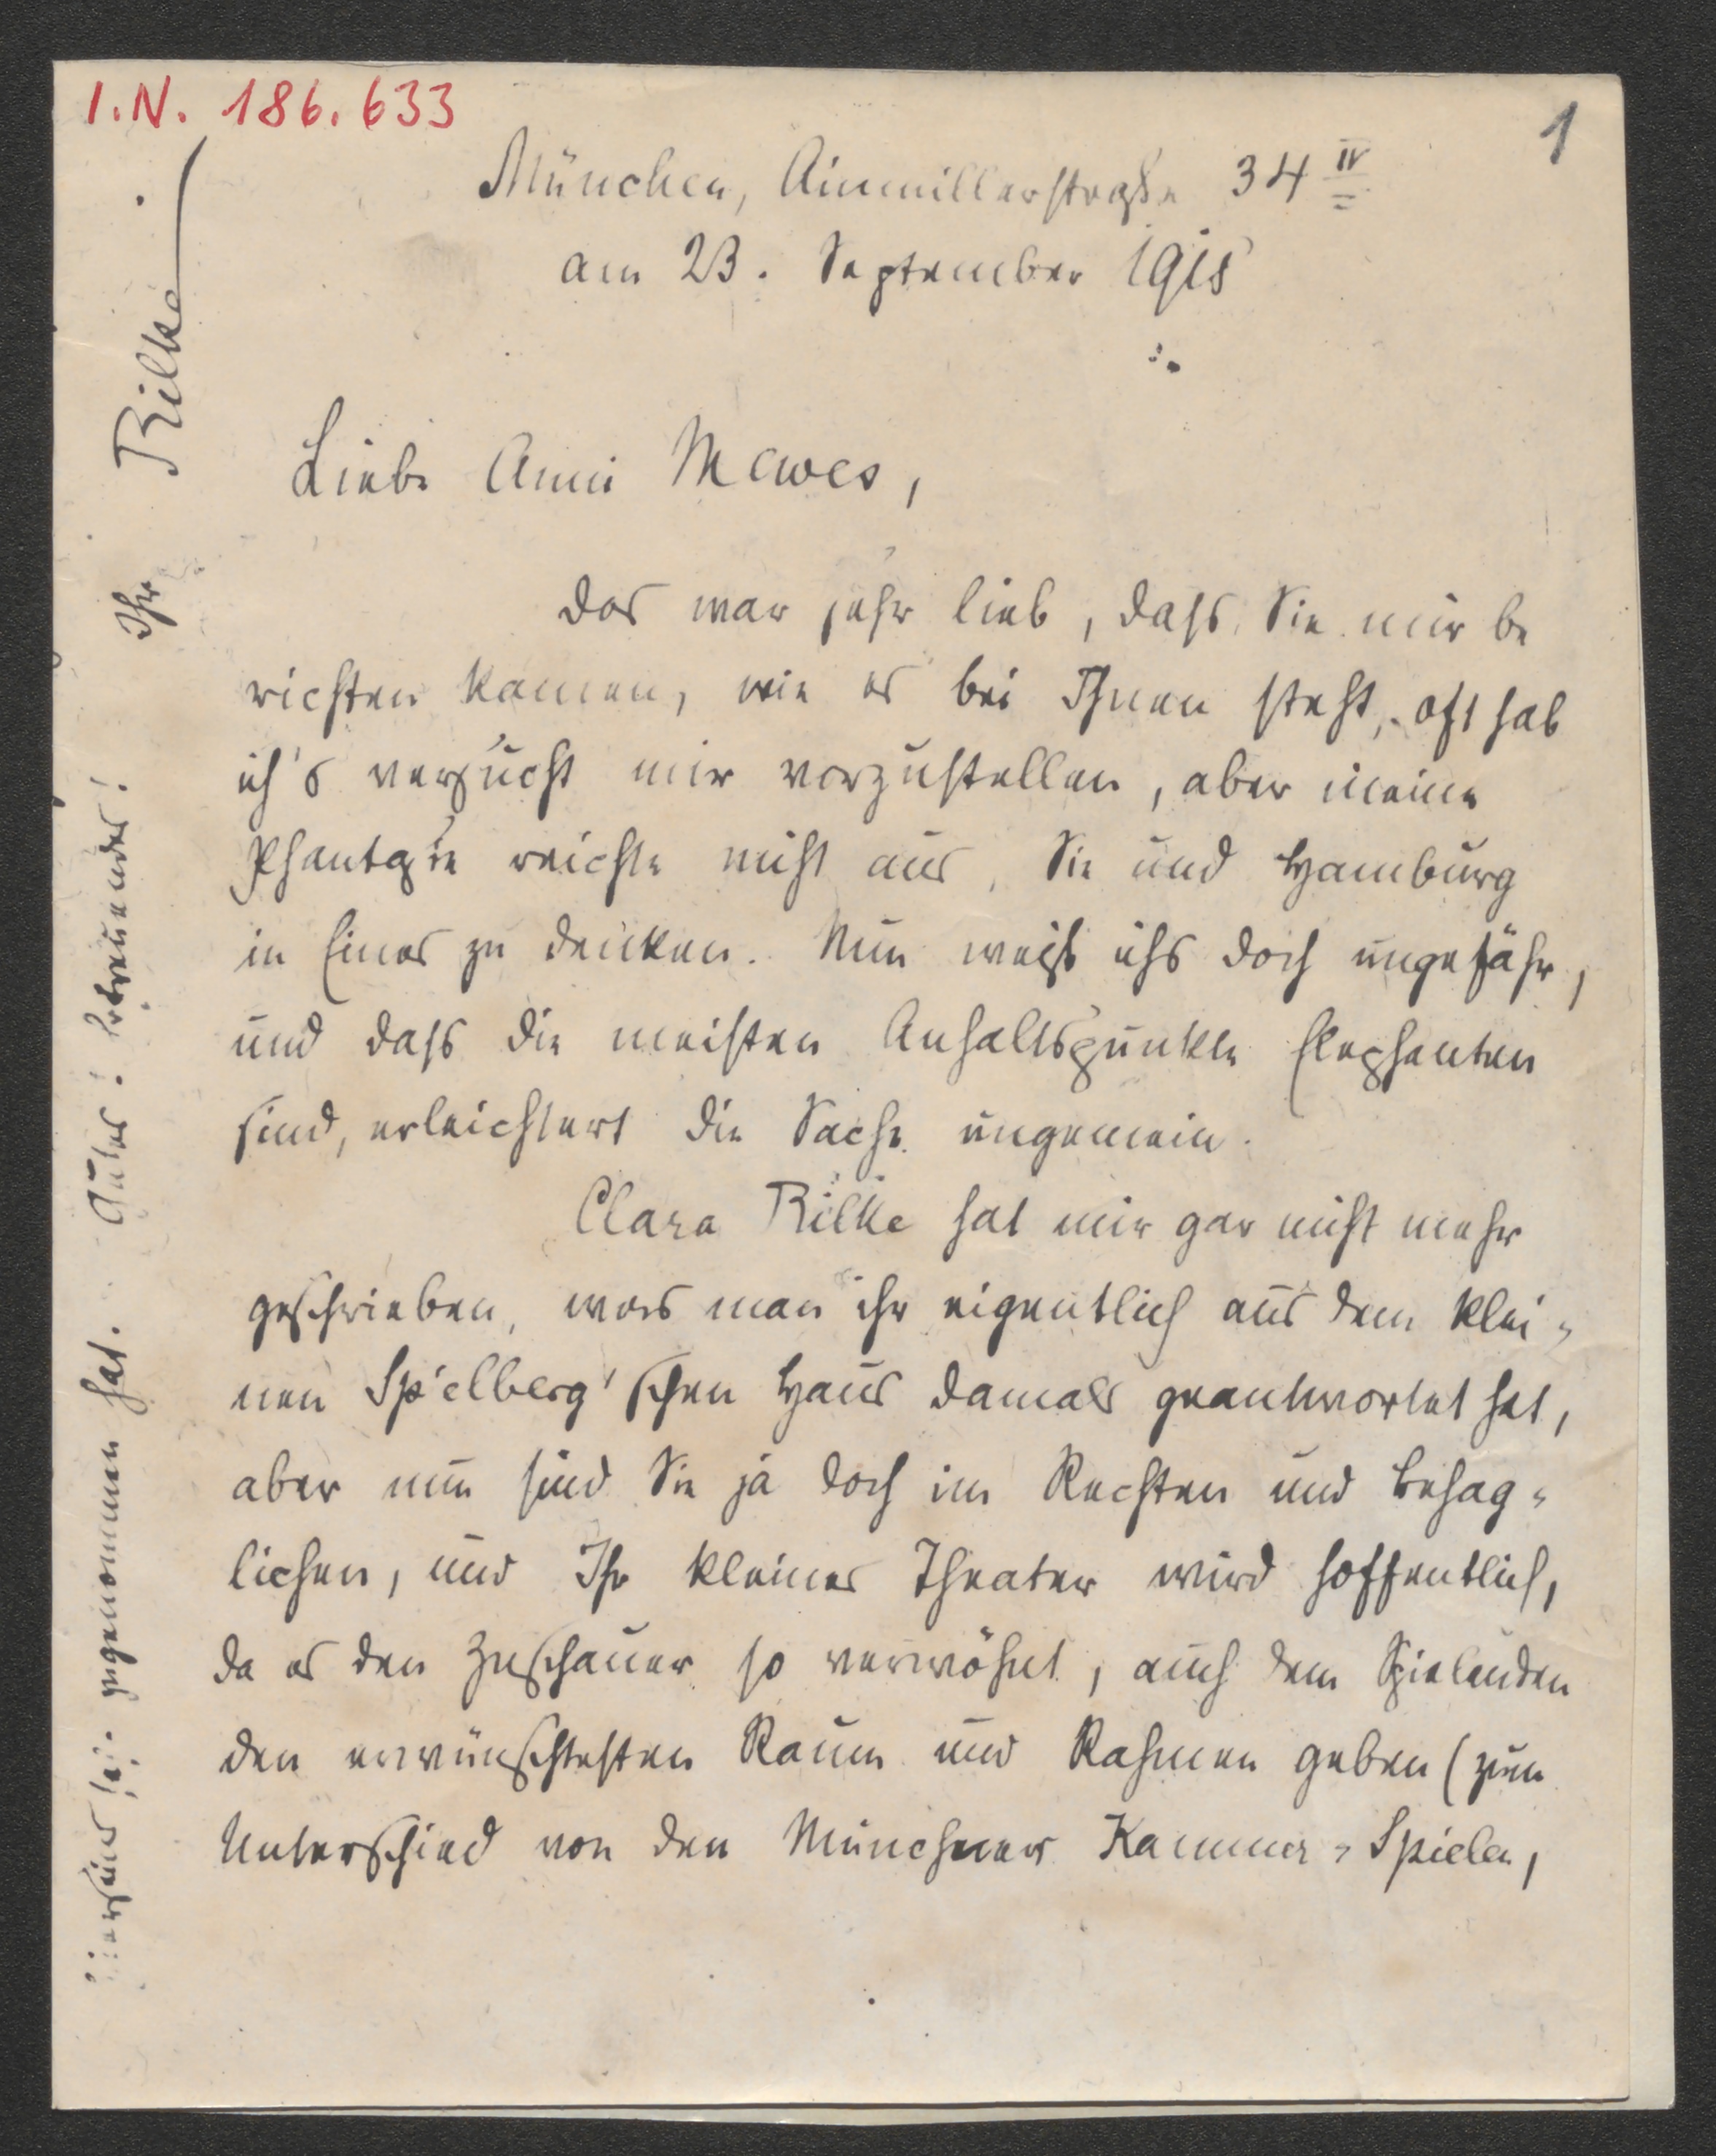 I.N. 186.633
1
München, Ainmillerstraße 34 IV
am 23. September 1918
Liebe Anni Mewes,
das war sehr lieb, dass Sie mir be
richten kamen, wie es bei Ihnen steht, oft hab
ich's versucht mir vorzustellen, aber meine
Phantasie reichte nicht aus, Sie und Hamburg
in Eines zu denken. Nun weiß ichs doch ungefähr,
und dass die meisten Anhaltspunkte Elephanten
sind, erleichtert die Sache ungemein.
Clara Rilke hat mir gar nicht mehr
geschrieben, was man ihr eigentlich aus dem klei-
nen Spielberg'schen Haus damals geantwortet hat,
aber nun sind Sie ja doch im Rechten und Behag-
lichen, und Ihr kleines Theater wird hoffentlich,
da es den Zuschauer so verwöhnt, auch dem Spielenden
den erwünschtesten Raum und Rahmen geben (zum
Unterschied von den Münchner Kammer-Spielen,
genommen hat. Gutes! Erfreuendes!
Ihr
Rilke